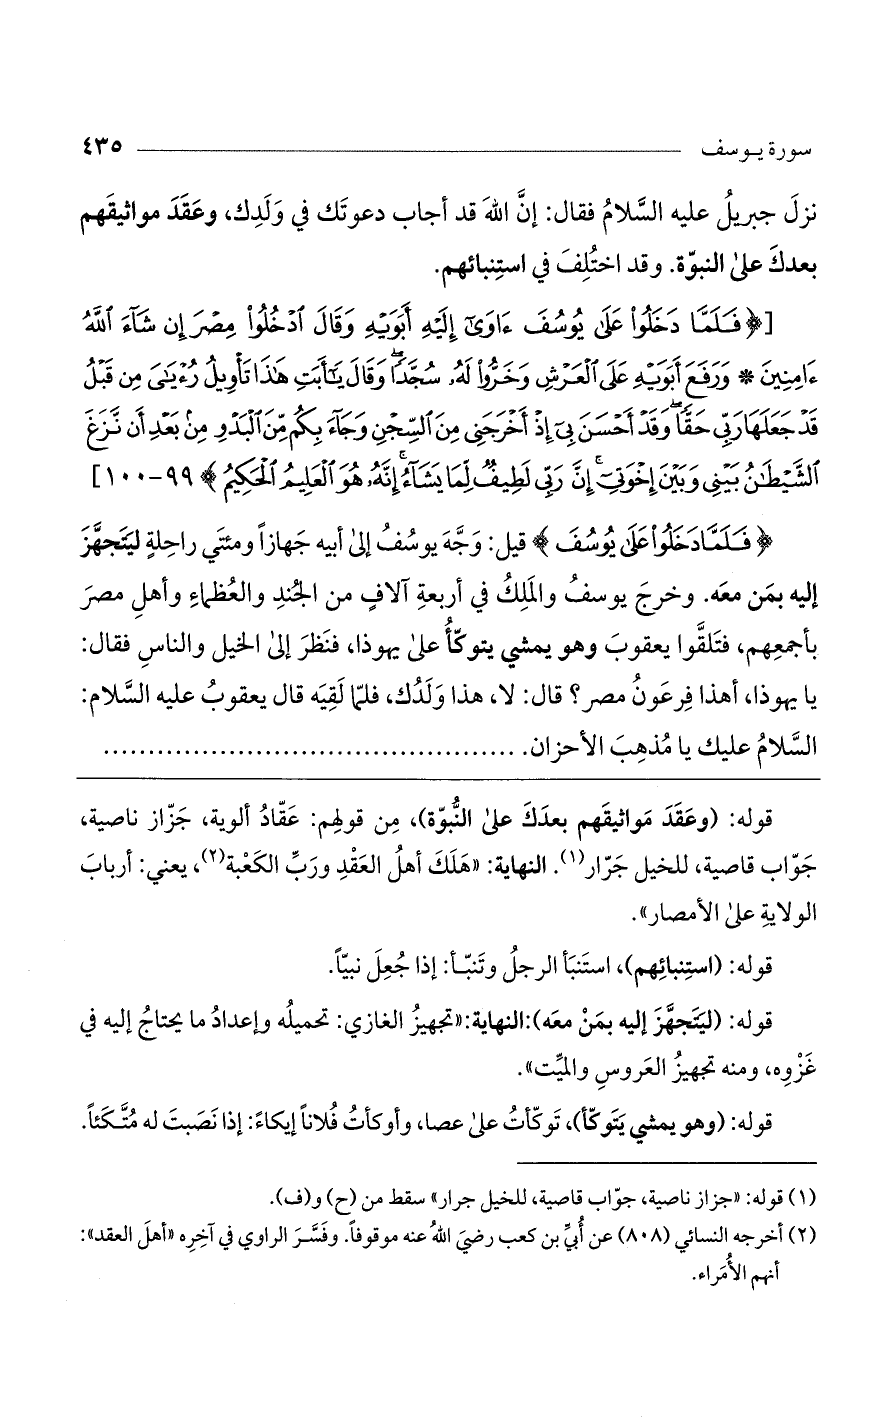 سورة يوسف ٤٣٥
نزلَ جبريلُ عليه السَّلامُ فقال: إنَّ اللهَ قد أجاب دعوتَك في وَلَدِك، وعَقَدَ مواثيقَهم
بعدكَ علىٰ النبوّة. وقد اختُلِفَ في استِنبائهم.
[﴿فَلَمَّا دَخَلُوا۟ عَلَىٰ يُوسُفَ ءَاوَىٰٓ إِلَيْهِ أَبَوَيْهِ وَقَالَ ٱدْخُلُوا۟ مِصْرَ إِن شَآءَ ٱللَّهُ
ءَامِنِينَ * وَرَفَعَ أَبَوَيْهِ عَلَى ٱلْعَرْشِ وَخَرُّوا۟ لَهُۥ سُجَّدًا ۖ وَقَالَ يَٰٓأَبَتِ هَٰذَا تَأْوِيلُ رُءْيَٰىَ مِن قَبْلُ
قَدْ جَعَلَهَا رَبِّى حَقًّا ۖ وَقَدْ أَحْسَنَ بِىٓ إِذْ أَخْرَجَنِى مِنَ ٱلسِّجْنِ وَجَآءَ بِكُم مِّنَ ٱلْبَدْوِ مِنۢ بَعْدِ أَن نَّزَغَ
ٱلشَّيْطَٰنُ بَيْنِى وَبَيْنَ إِخْوَتِىٓ ۚ إِنَّ رَبِّى لَطِيفٌ لِّمَا يَشَآءُ ۚ إِنَّهُۥ هُوَ ٱلْعَلِيمُ ٱلْحَكِيمُ﴾ ٩٩-١٠٠]
﴿فَلَمَّا دَخَلُوا۟ عَلَىٰ يُوسُفَ﴾ قيل: وَجَّهَ يوسُفُ إلىٰ أبيه جَهازاً ومئتَي راحِلةٍ ليَتَجهَّزَ
إليه بمَن معَه. وخرجَ يوسفُ والمَلِكُ في أربعةِ آلافٍ من الجُندِ والعُظماءِ وأهلِ مصرَ
بأجمعِهم، فتَلقَّوا يعقوبَ وهو يمشي يتوكّأُ علىٰ يهوذا، فنَظرَ إلىٰ الخيل والناسِ فقال:
يا يهوذا، أهذا فِرعَونُ مصر؟ قال: لا، هذا وَلَدُك، فلمّا لَقِيَه قال يعقوبُ عليه السَّلام:
السَّلامُ عليك يا مُذهِبَ الأحزان. ..............................................
قوله: (وعَقَدَ مَواثيقَهم بعدَكَ علىٰ النُّبوّة)، مِن قولهم: عَقّادُ ألوية، جَزّاز ناصية،
جَوّاب قاصية، للخيل جَرّار(١). النهاية: «هَلَكَ أهلُ العَقْدِ ورَبِّ الكَعْبة(٢)، يعني: أربابَ
الولايةِ علىٰ الأمصار».
قوله: (استِنبائِهم)، استَنبَأ الرجلُ وتَنبّأ: إذا جُعِلَ نبيّاً.
قوله: (ليَتَجهَّزَ إليه بمَنْ معَه):النهاية:«تجهيزُ الغازي: تحميلُه وإعدادُ ما يحتاجُ إليه في
غَزْوِه، ومنه تجهيزُ العَروسِ والميِّت».
قوله: (وهو يمشي يَتَوكّأ)، تَوكّأتُ علىٰ عصا، وأوكأتُ فُلاناً إيكاءً: إذا نَصَبتَ له مُتَّكَئاً.
(١) قوله: «جزاز ناصية، جوّاب قاصية، للخيل جرار» سقط من (ح) و(ف).
(٢) أخرجه النسائي (٨٠٨) عن أُبيِّ بن كعب رضيَ اللهُ عنه موقوفاً. وفَسَّرَ الراوي في آخِرِه «أهلَ العقد»:
أنهم الأُمَراء.